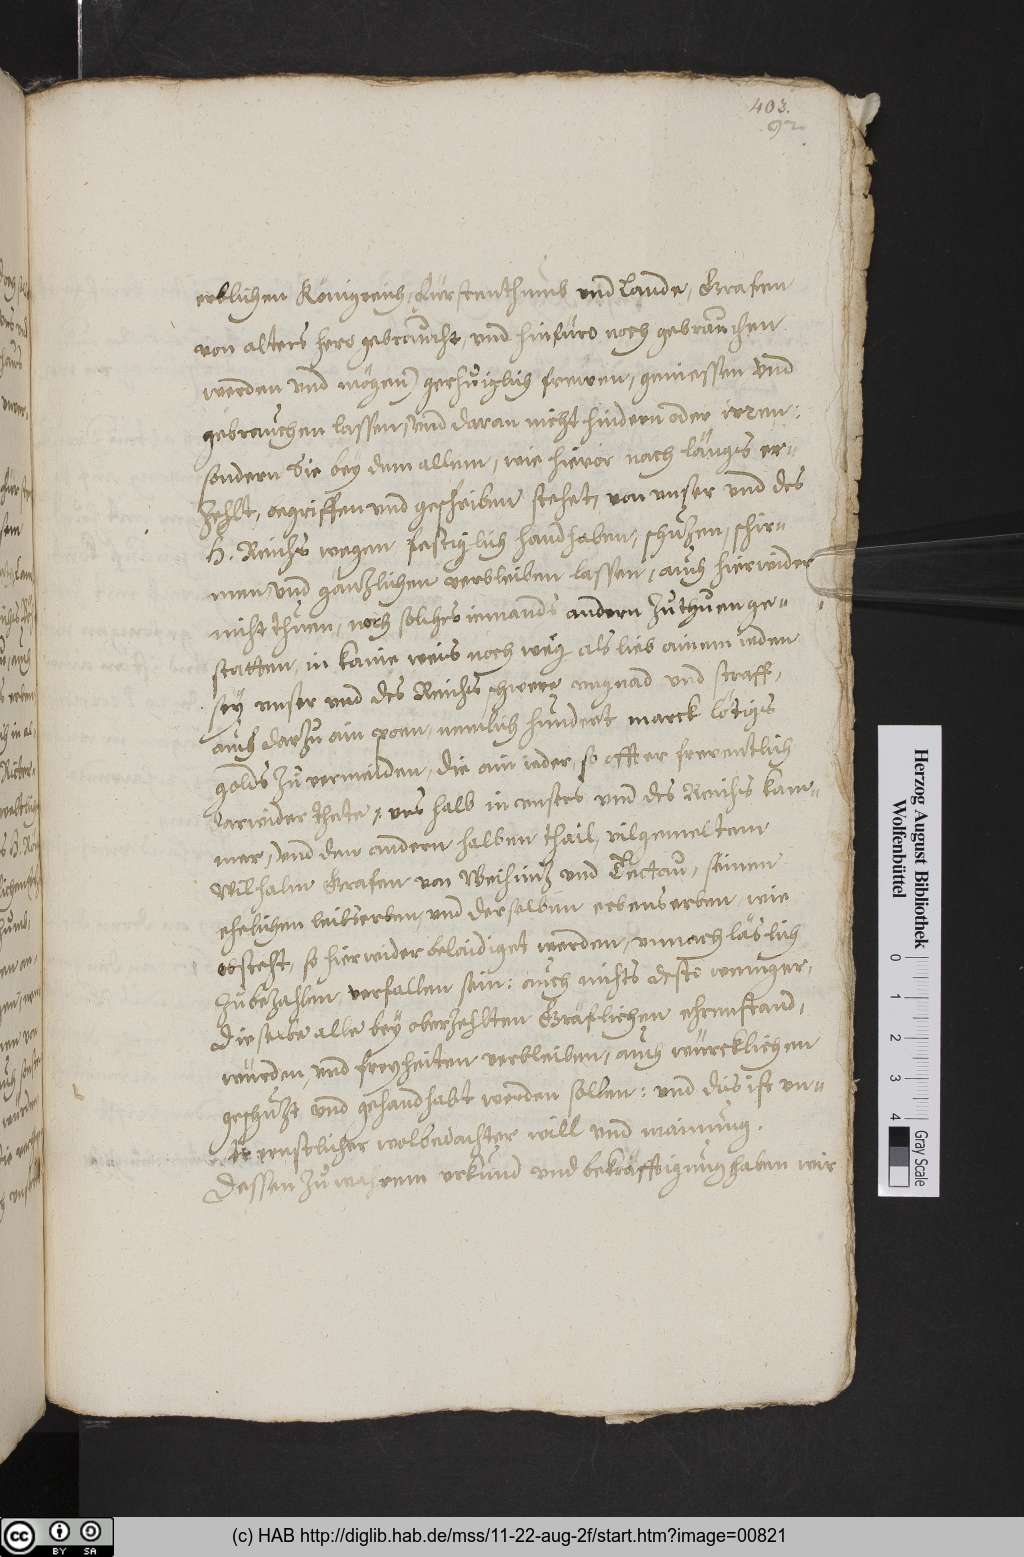 403.
92
erblichen Königreich, Fürstenthumb vnd Lande, Grafen
von alters hero gebraucht, vnd hinfüro noch gebrauchen
werden vnd mögen) gerhüiglich frewen, geniessen vnd
gebrauchen lassen, vnd daran nicht hindern oder irren:
sondern Sie bey dem allem, wie hievor nach längs er-
zehlt, begriffen vnd geschriben stehet, von vnser vnd des
H. Reichs wegen vestiglich handhaben, schuzen, schir-
men vnd gänzlichen verbleiben lassen, auch hierwider
nicht thuen, noch solches iemands andern zuthuen ge-
statten, in kaine weis noch weg als lieb ainem ieden
sey vnser vnd des Reichs schwere vngnad vnd straff,
auch darzu ain poen, nemlich hundert marck lötigs
golds zu vermeiden, die ain ieder, so offt er freventlich
darwider thete, vns halb in vnsers vnd des Reichs Kam-
mer, vnd den andern halben thail, vilgemeltem
Wilhalm Grafen von Wchiniz vnd Tettau, seinen
ehelichen leibserben, vnd derselben erbens erben, wie
obsteht, so hierwider belaidiget werden, vnnachläslich
zubezahlen, verfallen sein: auch nichts desto weniger,
dieselbe alle bey oberzehlten Gräflichen ehrenstand,
würden, vnd freyheiten verbleiben, auch würcklichen
geschuzt vnd gehandhabt werden sollen: vnd das ist vn-
ser ernstlicher wolbedachter will vnd mainung.
Dessen zu wahrem vrkund vnd bekräfftigung haben wir
Herzog August Bibliothek
Wolfenbüttel
0 1 2 3 4
Gray Scale
cc BY SA
(c) HAB http://diglib.hab.de/mss/11-22-aug-2f/start.htm?image=00821